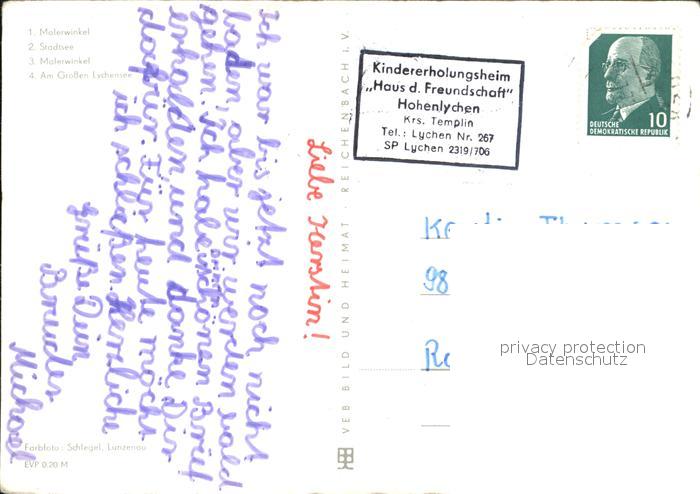 1. Malerwinkel
2. Stadtsee
3. Malerwinkel
4. Am Großen Lychensee
Liebe Kerstin!
Ich war bis jetzt noch nicht
baden, aber wir werden bald
gehen. Ich habe schönen Brief
erhalden und danke Dir
dafür. Für heute möcht
ich schließen. Herzliche
grüße Dein
Bruder
Michael
Farbfoto: Schlegel, Lunzenau
EVP 0.20 M
VEB BILD UND HEIMAT · REICHENBACH i. V.
Kindererholungsheim
„Haus d. Freundschaft"
Hohenlychen
Krs. Templin
Tel.: Lychen Nr. 267
SP Lychen 2319/706
DEUTSCHE
DEMOKRATISCHE REPUBLIK
10
98
privacy protection
Datenschutz